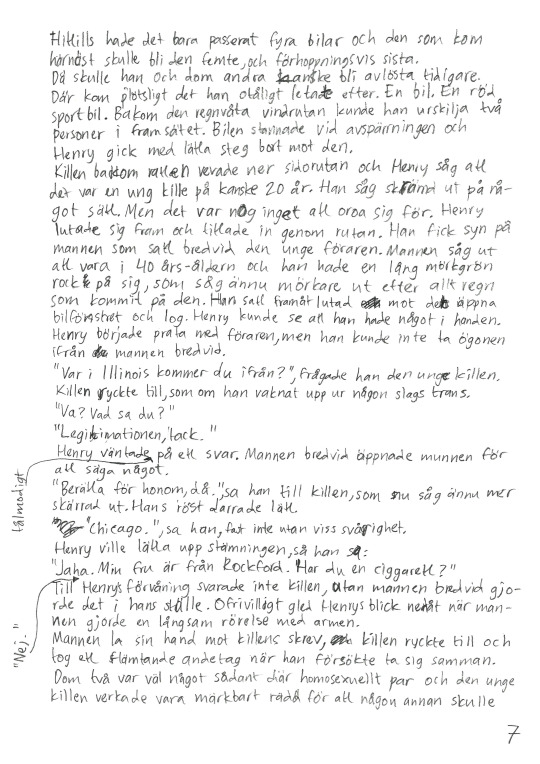 Hitills hade det bara passerat fyra bilar och den som kom
härnäst skulle bli den femte, och förhoppningsvis sista.
Då skulle han och dom andra kanske bli avlösta tidigare.
Där kom plötsligt det han otåligt letade efter. En bil. En röd
sportbil. Bakom den regnvåta vindrutan kunde han urskilja två
personer i framsätet. Bilen stannade vid avspärrningen och
Henry gick med lätta steg bort mot den.
Killen bakom ratten vevade ner sidorutan och Henry såg att
det var en ung kille på kanske 20 år. Han såg skrämd ut på nå-
got sätt. Men det var nog inget att oroa sig för. Henry
lutade sig fram och tittade in genom rutan. Han fick syn på
mannen som satt bredvid den unge föraren. Mannen såg ut
att vara i 40 års-åldern och han hade en lång mörkgrön
rock på sig, som såg ännu mörkare ut efter allt regn
som kommit på den. Han satt framåtlutad mot det öppna
bilfönstret och log. Henry kunde se att han hade något i handen.
Henry började prata med föraren, men han kunde inte ta ögonen
ifrån mannen bredvid.
"Var i Illinois kommer du ifrån?", frågade han den unge killen.
Killen ryckte till, som om han vaknat upp ur någon slags trans.
"Va? Vad sa du?"
"Legitimationen, tack."
Henry väntade på ett svar. Mannen bredvid öppnade munnen för
att säga något.
tålmodigt
"Berätta för honom, då.", sa han till killen, som nu såg ännu mer
skärrad ut. Hans röst darrade lätt.
"Chicago.", sa han, fast inte utan viss svårighet.
Henry ville lätta upp stämningen, så han sa:
"Jaha. Min fru är från Rockford. Har du en ciggarett?"
"Nej."
Till Henrys förvåning svarade inte killen, utan mannen bredvid gjo-
rde det i hans ställe. Ofrivilligt gled Henrys blick nedåt när man-
nen gjorde en långsam rörelse med armen.
Mannen la sin hand mot killens skrev, killen ryckte till och
tog ett flämtande andetag när han försökte ta sig samman.
Dom två var väl något sådant där homosexuellt par och den unge
killen verkade vara märkbart rädd för att någon annan skulle
7